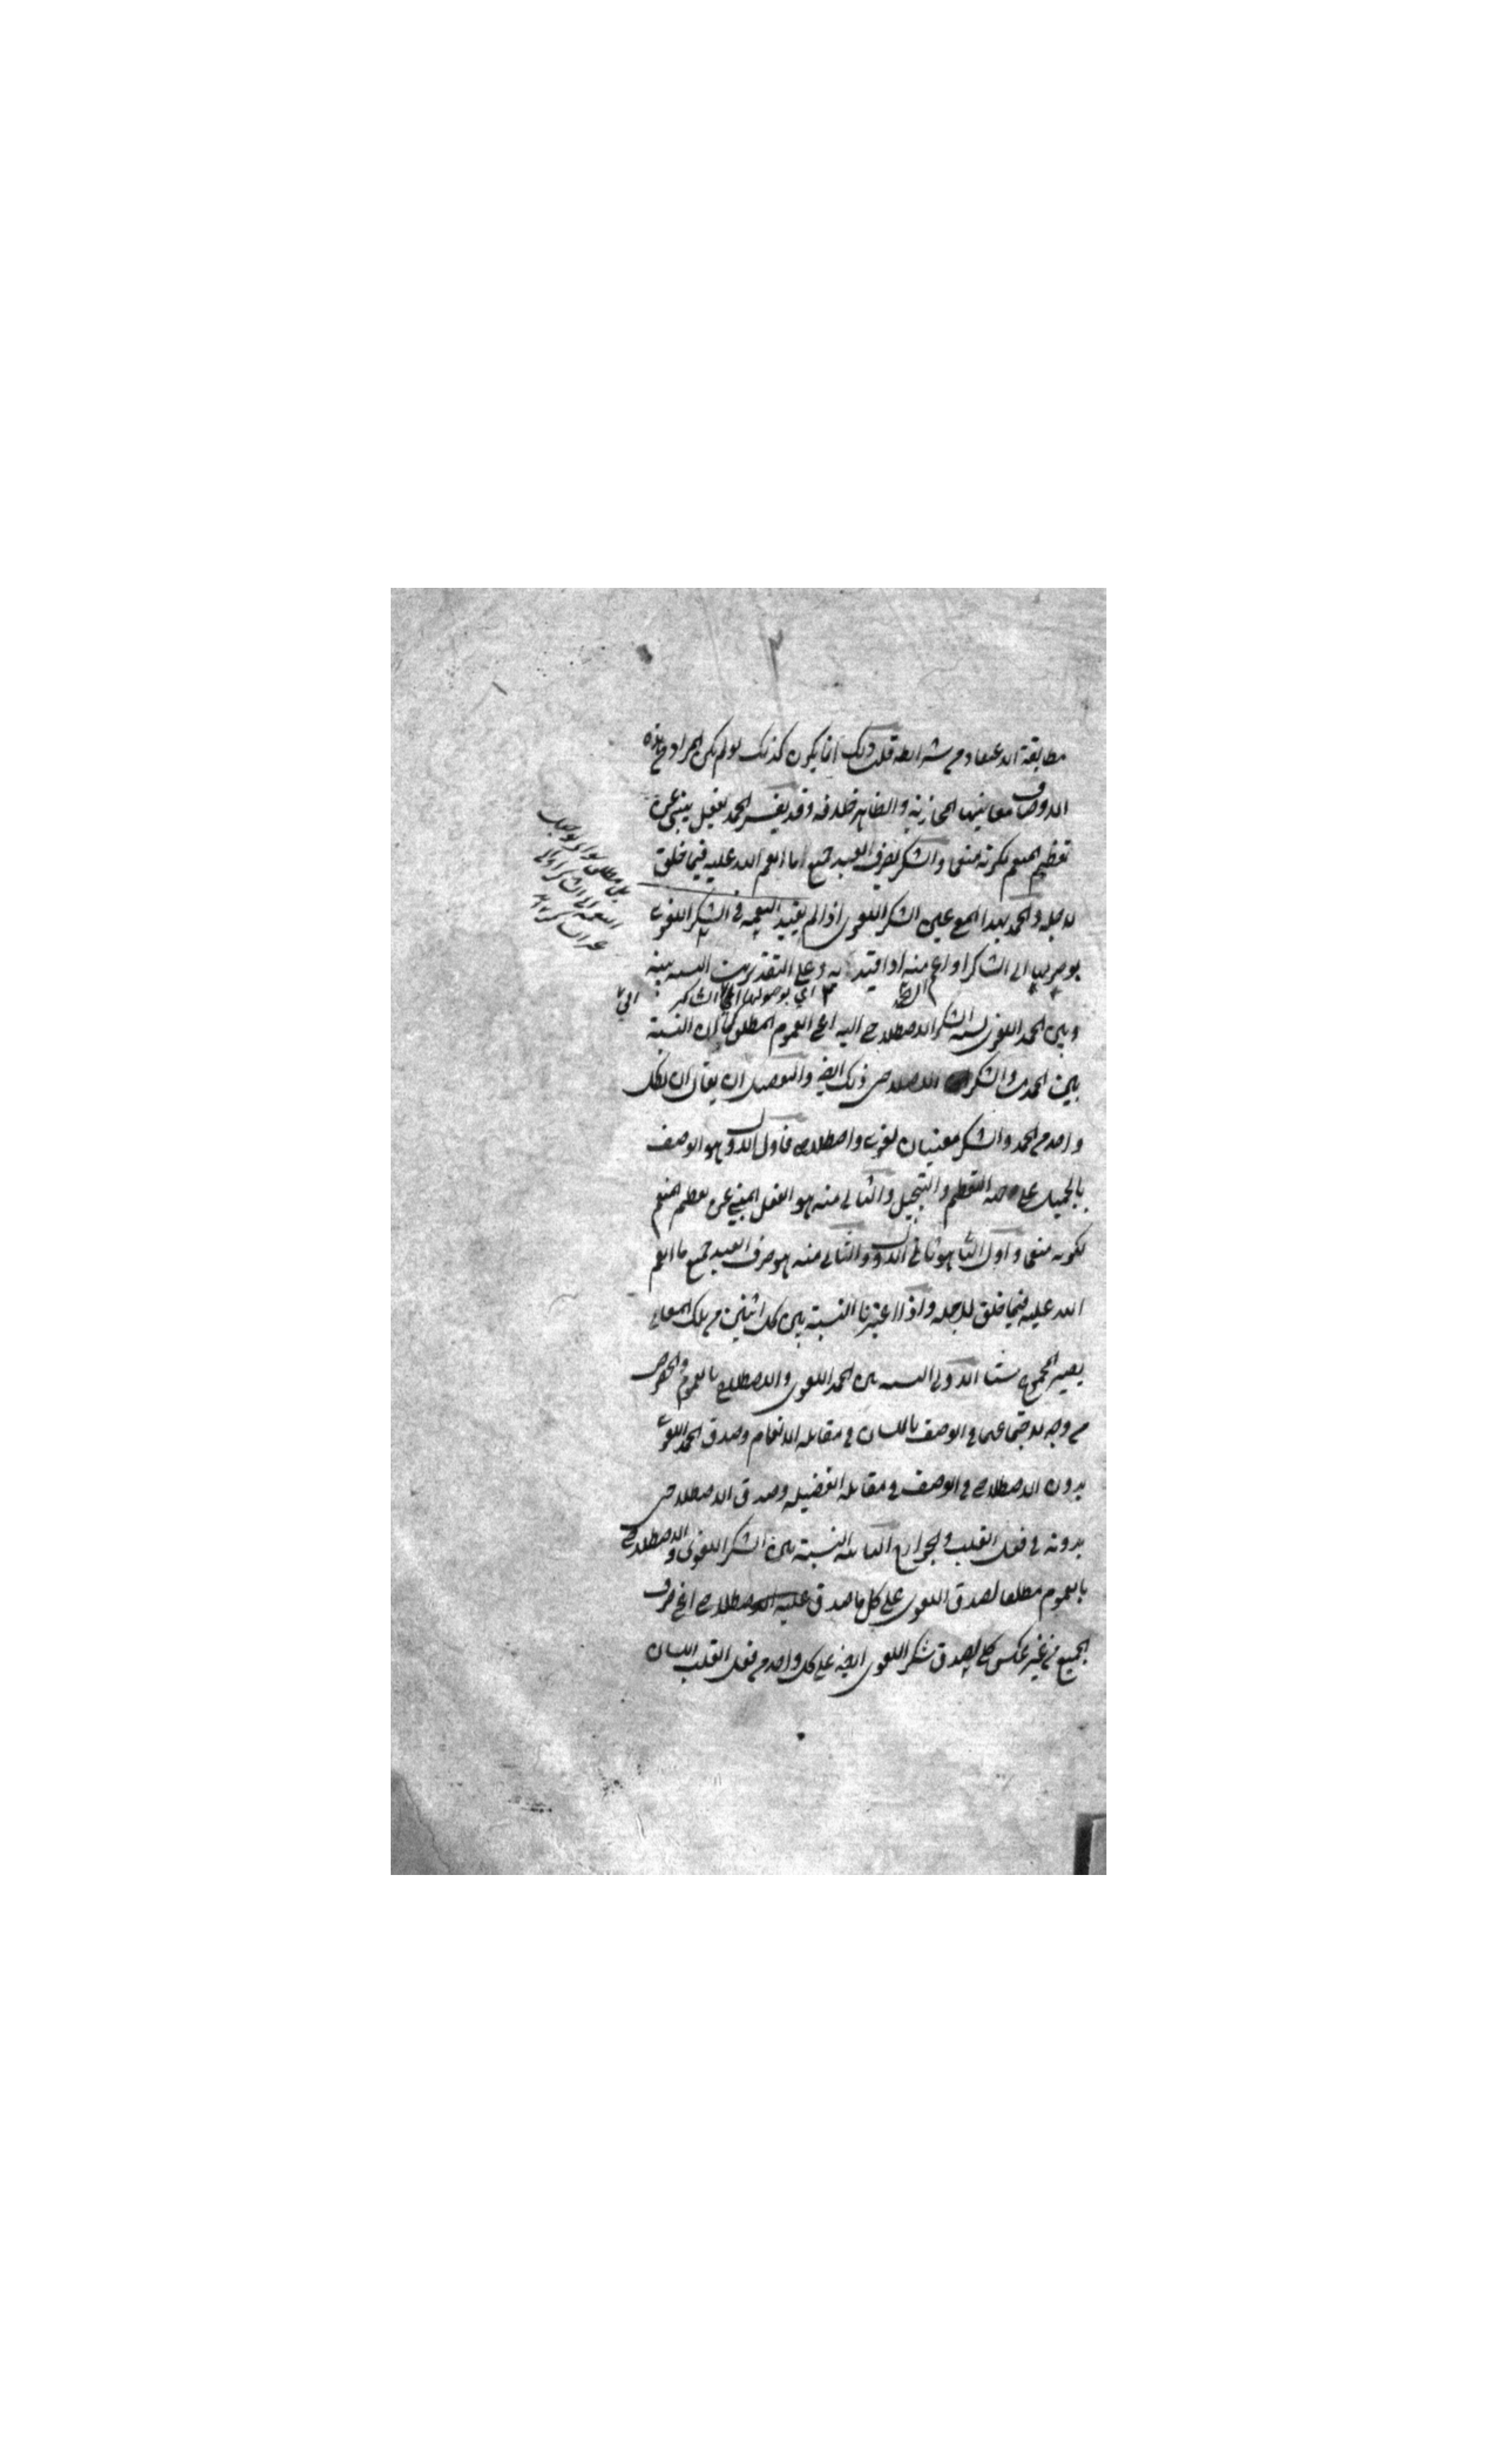 مطابقة الاعتقاد من شرائطه قلت ذلك انما يكون كذلك لو لم يكن المراد من هذه
الاوصاف معانيها المجازية والظاهر خلافه وقد يفسر الحمد بفعل ينبئ عن
تعظيم المنعم لكونه منعما والشكر بصرف العبد جميع ما انعم الله عليه فيما خلق
لاجله والحمد بهذا المعنى عين الشكر اللغوى اذا لم يقيد النعمة فى الشكر اللغوى
بوصولها الى الشاكر او اعم منه اذا قيد به وعلى التقديرين النسبة بينه
اى بوصولها الى الشاكر
وبين الحمد اللغوى نسبة الشكر الاصطلاحى اليه اعنى العموم المطلق كما ان النسبة
بين الحمد والشكر الاصطلاحى ذلك ايضا والتفصيل ان يقال ان لكل
واحد من الحمد والشكر معنيان لغوى واصطلاحى فاول الاول هو الوصف
بالجميل على جهة التعظيم والتبجيل والثانى منه هو الفعل المنبئ عن تعظيم المنعم
لكونه منعما واول الثانى هو ثانى الاول والثانى منه هو صرف العبد جميع ما انعم
الله عليه فيما خلق لاجله واذا اعتبرنا النسبة بين كل اثنين من تلك المعانى
يصير المجموع ستا الاولى النسبة بين الحمد اللغوى والاصطلاحى بالعموم والخصوص
من وجه لاجتماعهما فى الوصف باللسان فى مقابلة الانعام وصدق الحمد اللغوى
بدون الاصطلاحى فى الوصف فى مقابلة الفضيلة وصدق الاصطلاحى
بدونه فى فعل القلب والجوارح الثانية النسبة بين الشكر اللغوى والاصطلاحى
بالعموم مطلقا لصدق اللغوى على كل ما صدق عليه الاصطلاحى اعنى صرف
الجميع من غير عكس كلى لصدق شكر اللغوى ايضا على كل واحد من فعل القلب اللسان